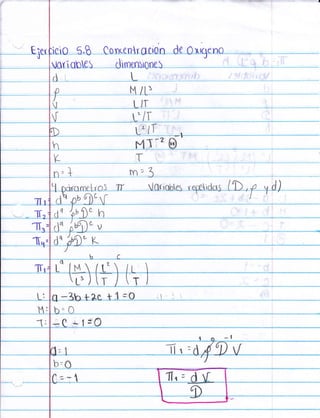 Ejercicio 5.8 Concentración de Oxigeno
variables dimensiones
d L
ρ M/L³
v L/T
V L²/T
D L²/T
h MT⁻²Θ⁻¹
K T
n=7 m=3
4 parametros π Variables repetidas (D, ρ y d)
π₁= dᵃ ρᵇ Dᶜ V
π₂= dᵃ ρᵇ Dᶜ h
π₃= dᵃ ρᵇ Dᶜ v
π₄= dᵃ ρᵇ Dᶜ K
π₁= Lᵃ (M/L³)ᵇ (L²/T)ᶜ (L/T)
L: a -3b +2c +1 =0
M: b=0
T: -c -1=0
a=1
b=0
c=-1
π₁=d¹ρ⁰D⁻¹V
π₁= dV/D